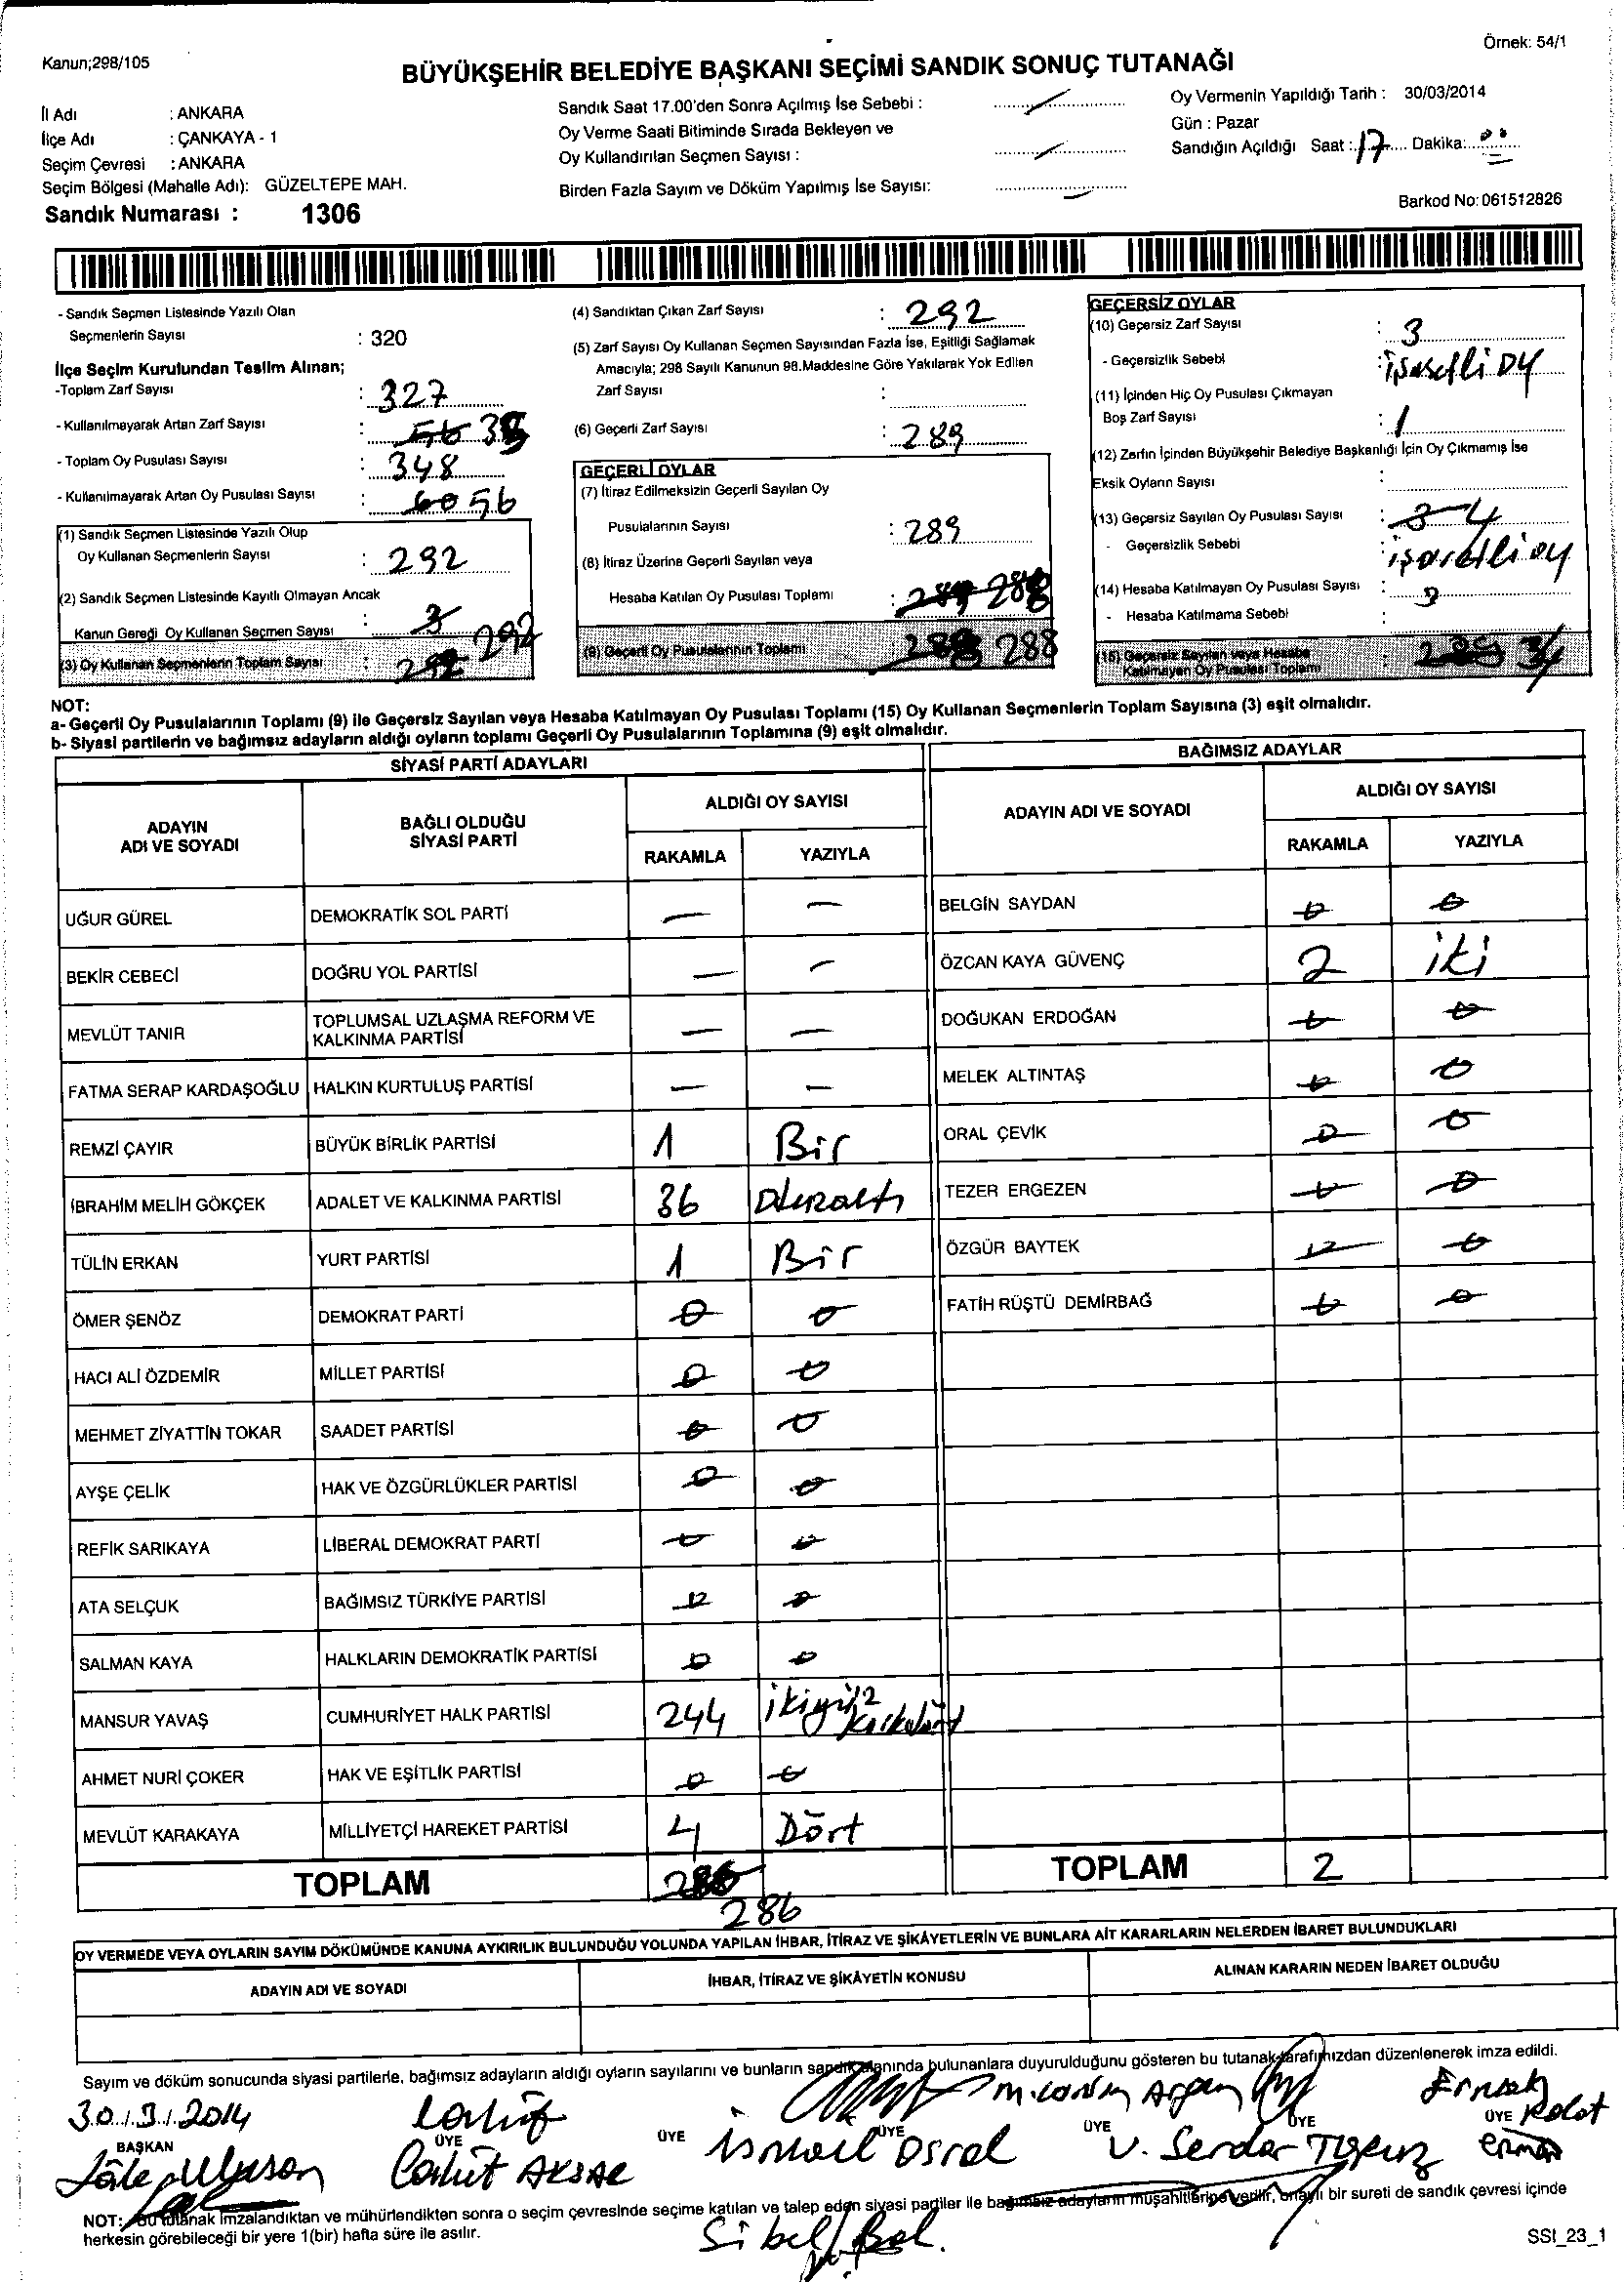 Kanun;298/105
Örnek: 54/1
BÜYÜKŞEHİR BELEDİYE BAŞKANI SEÇİMİ SANDIK SONUÇ TUTANAĞI
İl Adı : ANKARA
İlçe Adı : ÇANKAYA - 1
Seçim Çevresi : ANKARA
Seçim Bölgesi (Mahalle Adı): GÜZELTEPE MAH.
Sandık Numarası : 1306
Sandık Saat 17.00'den Sonra Açılmış İse Sebebi :
Oy Verme Saati Bitiminde Sırada Bekleyen ve
Oy Kullandırılan Seçmen Sayısı :
Birden Fazla Sayım ve Döküm Yapılmış İse Sayısı:
Oy Vermenin Yapıldığı Tarih : 30/03/2014
Gün : Pazar
Sandığın Açıldığı Saat : 17 Dakika: 00
Barkod No: 061512826
- Sandık Seçmen Listesinde Yazılı Olan
Seçmenlerin Sayısı : 320
İlçe Seçim Kurulundan Teslim Alınan;
-Toplam Zarf Sayısı : 327
- Kullanılmayarak Artan Zarf Sayısı : 56 35
- Toplam Oy Pusulası Sayısı : 348
- Kullanılmayarak Artan Oy Pusulası Sayısı : 60 56
(1) Sandık Seçmen Listesinde Yazılı Olup
Oy Kullanan Seçmenlerin Sayısı : 292
(2) Sandık Seçmen Listesinde Kayıtlı Olmayan Ancak
Kanun Gereği Oy Kullanan Seçmen Sayısı : 3
(3) Oy Kullanan Seçmenlerin Toplam Sayısı : 292 292
(4) Sandıktan Çıkan Zarf Sayısı : 292
(5) Zarf Sayısı Oy Kullanan Seçmen Sayısından Fazla İse, Eşitliği Sağlamak
Amacıyla; 298 Sayılı Kanunun 98.Maddesine Göre Yakılarak Yok Edilen
Zarf Sayısı :
(6) Geçerli Zarf Sayısı : 289
GEÇERLİ OYLAR
(7) İtiraz Edilmeksizin Geçerli Sayılan Oy
Pusulalarının Sayısı : 289
(8) İtiraz Üzerine Geçerli Sayılan veya
Hesaba Katılan Oy Pusulası Toplamı : 289 288
(9) Geçerli Oy Pusulalarının Toplamı 288 288
GEÇERSİZ OYLAR
(10) Geçersiz Zarf Sayısı : 3
- Geçersizlik Sebebi : işaretli oy
(11) İçinden Hiç Oy Pusulası Çıkmayan
Boş Zarf Sayısı : 1
(12) Zarfın İçinden Büyükşehir Belediye Başkanlığı İçin Oy Çıkmamış İse
Eksik Oyların Sayısı :
(13) Geçersiz Sayılan Oy Pusulası Sayısı : 3 4
- Geçersizlik Sebebi : işaretli oy
(14) Hesaba Katılmayan Oy Pusulası Sayısı : 3
- Hesaba Katılmama Sebebi :
(15) Geçersiz Sayılan veya Hesaba
Katılmayan Oy Pusulası Toplamı : 289 4
NOT:
a- Geçerli Oy Pusulalarının Toplamı (9) ile Geçersiz Sayılan veya Hesaba Katılmayan Oy Pusulası Toplamı (15) Oy Kullanan Seçmenlerin Toplam Sayısına (3) eşit olmalıdır.
b- Siyasi partilerin ve bağımsız adayların aldığı oyların toplamı Geçerli Oy Pusulalarının Toplamına (9) eşit olmalıdır.
SİYASİ PARTİ ADAYLARI
ADAYIN ADI VE SOYADI
BAĞLI OLDUĞU SİYASİ PARTİ
ALDIĞI OY SAYISI
RAKAMLA YAZIYLA
UĞUR GÜREL DEMOKRATİK SOL PARTİ — —
BEKİR CEBECİ DOĞRU YOL PARTİSİ — —
MEVLÜT TANIR TOPLUMSAL UZLAŞMA REFORM VE KALKINMA PARTİSİ — —
FATMA SERAP KARDAŞOĞLU HALKIN KURTULUŞ PARTİSİ — —
REMZİ ÇAYIR BÜYÜK BİRLİK PARTİSİ 1 Bir
İBRAHİM MELİH GÖKÇEK ADALET VE KALKINMA PARTİSİ 36 Otuzaltı
TÜLİN ERKAN YURT PARTİSİ 1 Bir
ÖMER ŞENÖZ DEMOKRAT PARTİ 0 0
HACI ALİ ÖZDEMİR MİLLET PARTİSİ 0 0
MEHMET ZİYATTİN TOKAR SAADET PARTİSİ 0 0
AYŞE ÇELİK HAK VE ÖZGÜRLÜKLER PARTİSİ 0 0
REFİK SARIKAYA LİBERAL DEMOKRAT PARTİ 0 0
ATA SELÇUK BAĞIMSIZ TÜRKİYE PARTİSİ 0 0
SALMAN KAYA HALKLARIN DEMOKRATİK PARTİSİ 0 0
MANSUR YAVAŞ CUMHURİYET HALK PARTİSİ 244 ikiyüz kırkdört
AHMET NURİ ÇOKER HAK VE EŞİTLİK PARTİSİ 0 0
MEVLÜT KARAKAYA MİLLİYETÇİ HAREKET PARTİSİ 4 Dört
TOPLAM 286
286
BAĞIMSIZ ADAYLAR
ADAYIN ADI VE SOYADI
ALDIĞI OY SAYISI
RAKAMLA YAZIYLA
BELGİN SAYDAN 0 0
ÖZCAN KAYA GÜVENÇ 2 iki
DOĞUKAN ERDOĞAN 0 0
MELEK ALTINTAŞ 0 0
ORAL ÇEVİK 0 0
TEZER ERGEZEN 0 0
ÖZGÜR BAYTEK 0 0
FATİH RÜŞTÜ DEMİRBAĞ 0 0
TOPLAM 2
OY VERMEDE VEYA OYLARIN SAYIM DÖKÜMÜNDE KANUNA AYKIRILIK BULUNDUĞU YOLUNDA YAPILAN İHBAR, İTİRAZ VE ŞİKÂYETLERİN VE BUNLARA AİT KARARLARIN NELERDEN İBARET BULUNDUKLARI
ADAYIN ADI VE SOYADI İHBAR, İTİRAZ VE ŞİKÂYETİN KONUSU ALINAN KARARIN NEDEN İBARET OLDUĞU
Sayım ve döküm sonucunda siyasi partilerle, bağımsız adayların aldığı oyların sayılarını ve bunların sandık alanında bulunanlara duyurulduğunu gösteren bu tutanak tarafımızdan düzenlenerek imza edildi.
30/3/2014
BAŞKAN ÜYE ÜYE ÜYE ÜYE ÜYE ÜYE
Cahit Aksae İsmail V. Serdar
NOT: Bu tutanak imzalandıktan ve mühürlendikten sonra o seçim çevresinde seçime katılan ve talep eden siyasi partiler ile bağımsız adayların müşahitlerine verilir, onaylı bir sureti de sandık çevresi içinde
herkesin görebileceği bir yere 1(bir) hafta süre ile asılır.
Sibel Bal.
SSI_23_1